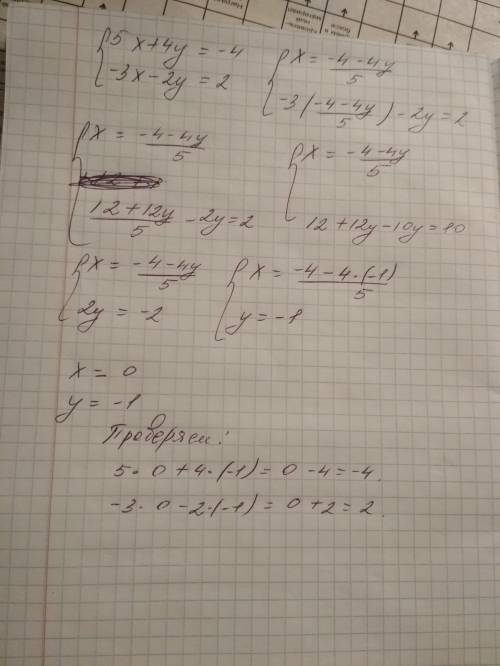 5x+4y = -4
-3x-2y = 2
x = (-4-4y)/5
-3((-4-4y)/5) - 2y = 2
x = (-4-4y)/5
(12+12y)/5 - 2y = 2
x = (-4-4y)/5
12+12y-10y = 10
x = (-4-4y)/5
2y = -2
x = (-4-4·(-1))/5
y = -1
x = 0
y = -1
Проверяем:
5·0+4·(-1) = 0-4 = -4.
-3·0-2·(-1) = 0+2 = 2.